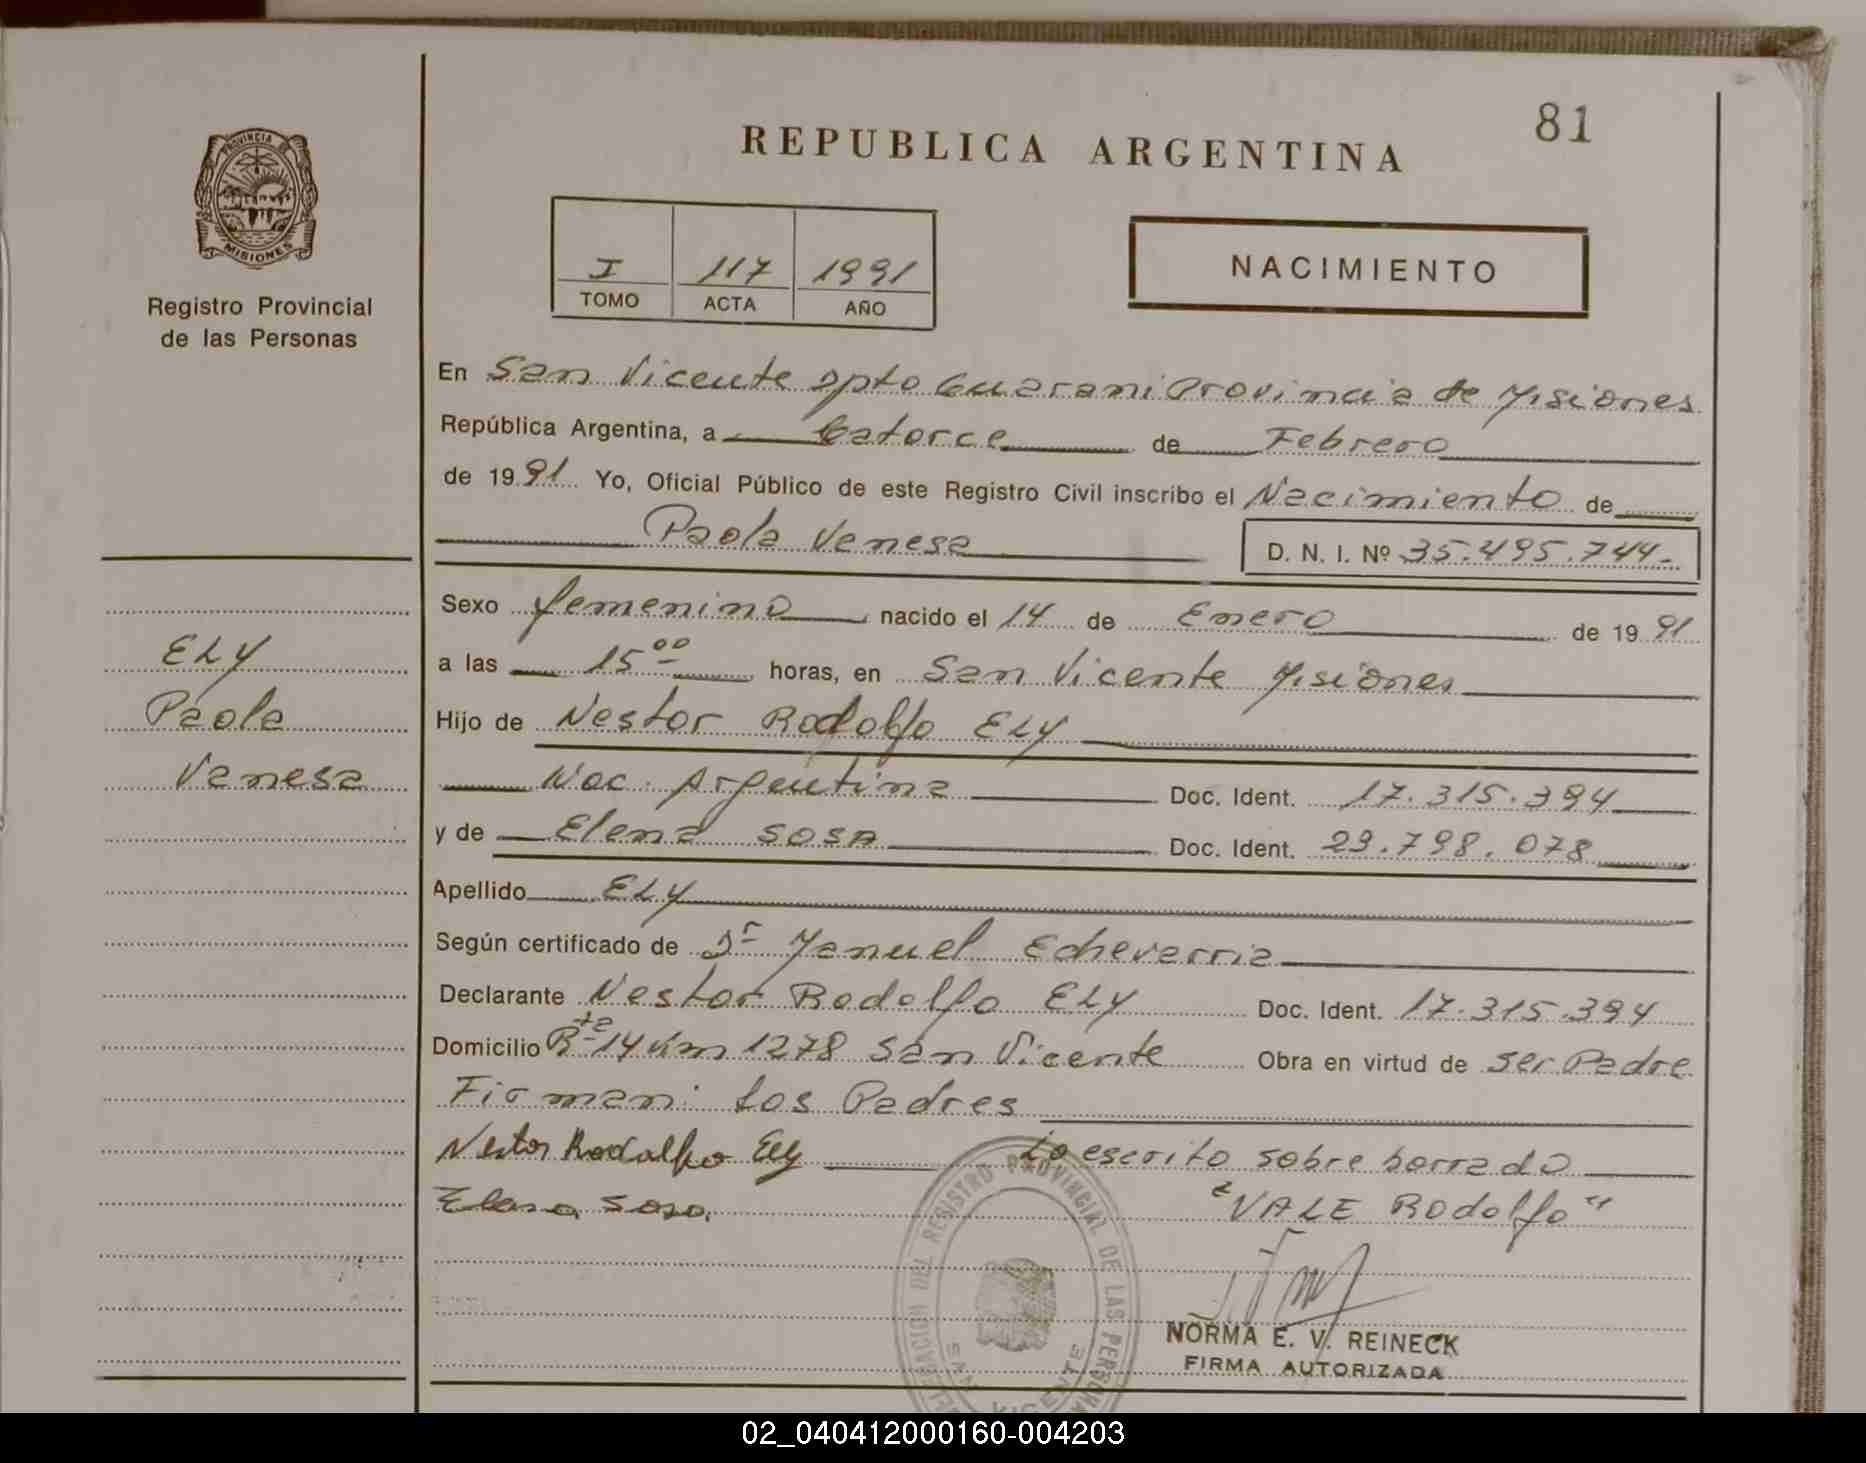 81
REPUBLICA ARGENTINA
PROVINCIA DE
MISIONES
Registro Provincial
de las Personas
I 117 1991
TOMO ACTA AÑO
NACIMIENTO
En San Vicente Dpto Guarani Provincia de Misiones
República Argentina, a Catorce de Febrero
de 1991 Yo, Oficial Público de este Registro Civil inscribo el Nacimiento de
Paola Vanesa D. N. I. Nº 35.495.744.-
Sexo femenino nacido el 14 de Enero de 1991
a las 15 00 horas, en San Vicente Misiones
Hijo de Nestor Rodolfo ELY
Nac. Argentina Doc. Ident. 17.315.394
y de Elena SOSA Doc. Ident. 29.798.078
Apellido ELY
Según certificado de Dr Manuel Echeverria
Declarante Nestor Rodolfo ELY Doc. Ident. 17.315.394
Domicilio Rta 14 Km 1278 San Vicente Obra en virtud de ser Padre
Firman: Los Padres
Nestor Rodolfo Ely Lo escrito sobre borrado
Elena Sosa "VALE Rodolfo"
NORMA E. V. REINECK
FIRMA AUTORIZADA
ELY
Paola
Vanesa
DEL REGISTRO PROVINCIAL DE LAS
SAN VICENTE
02_040412000160-004203